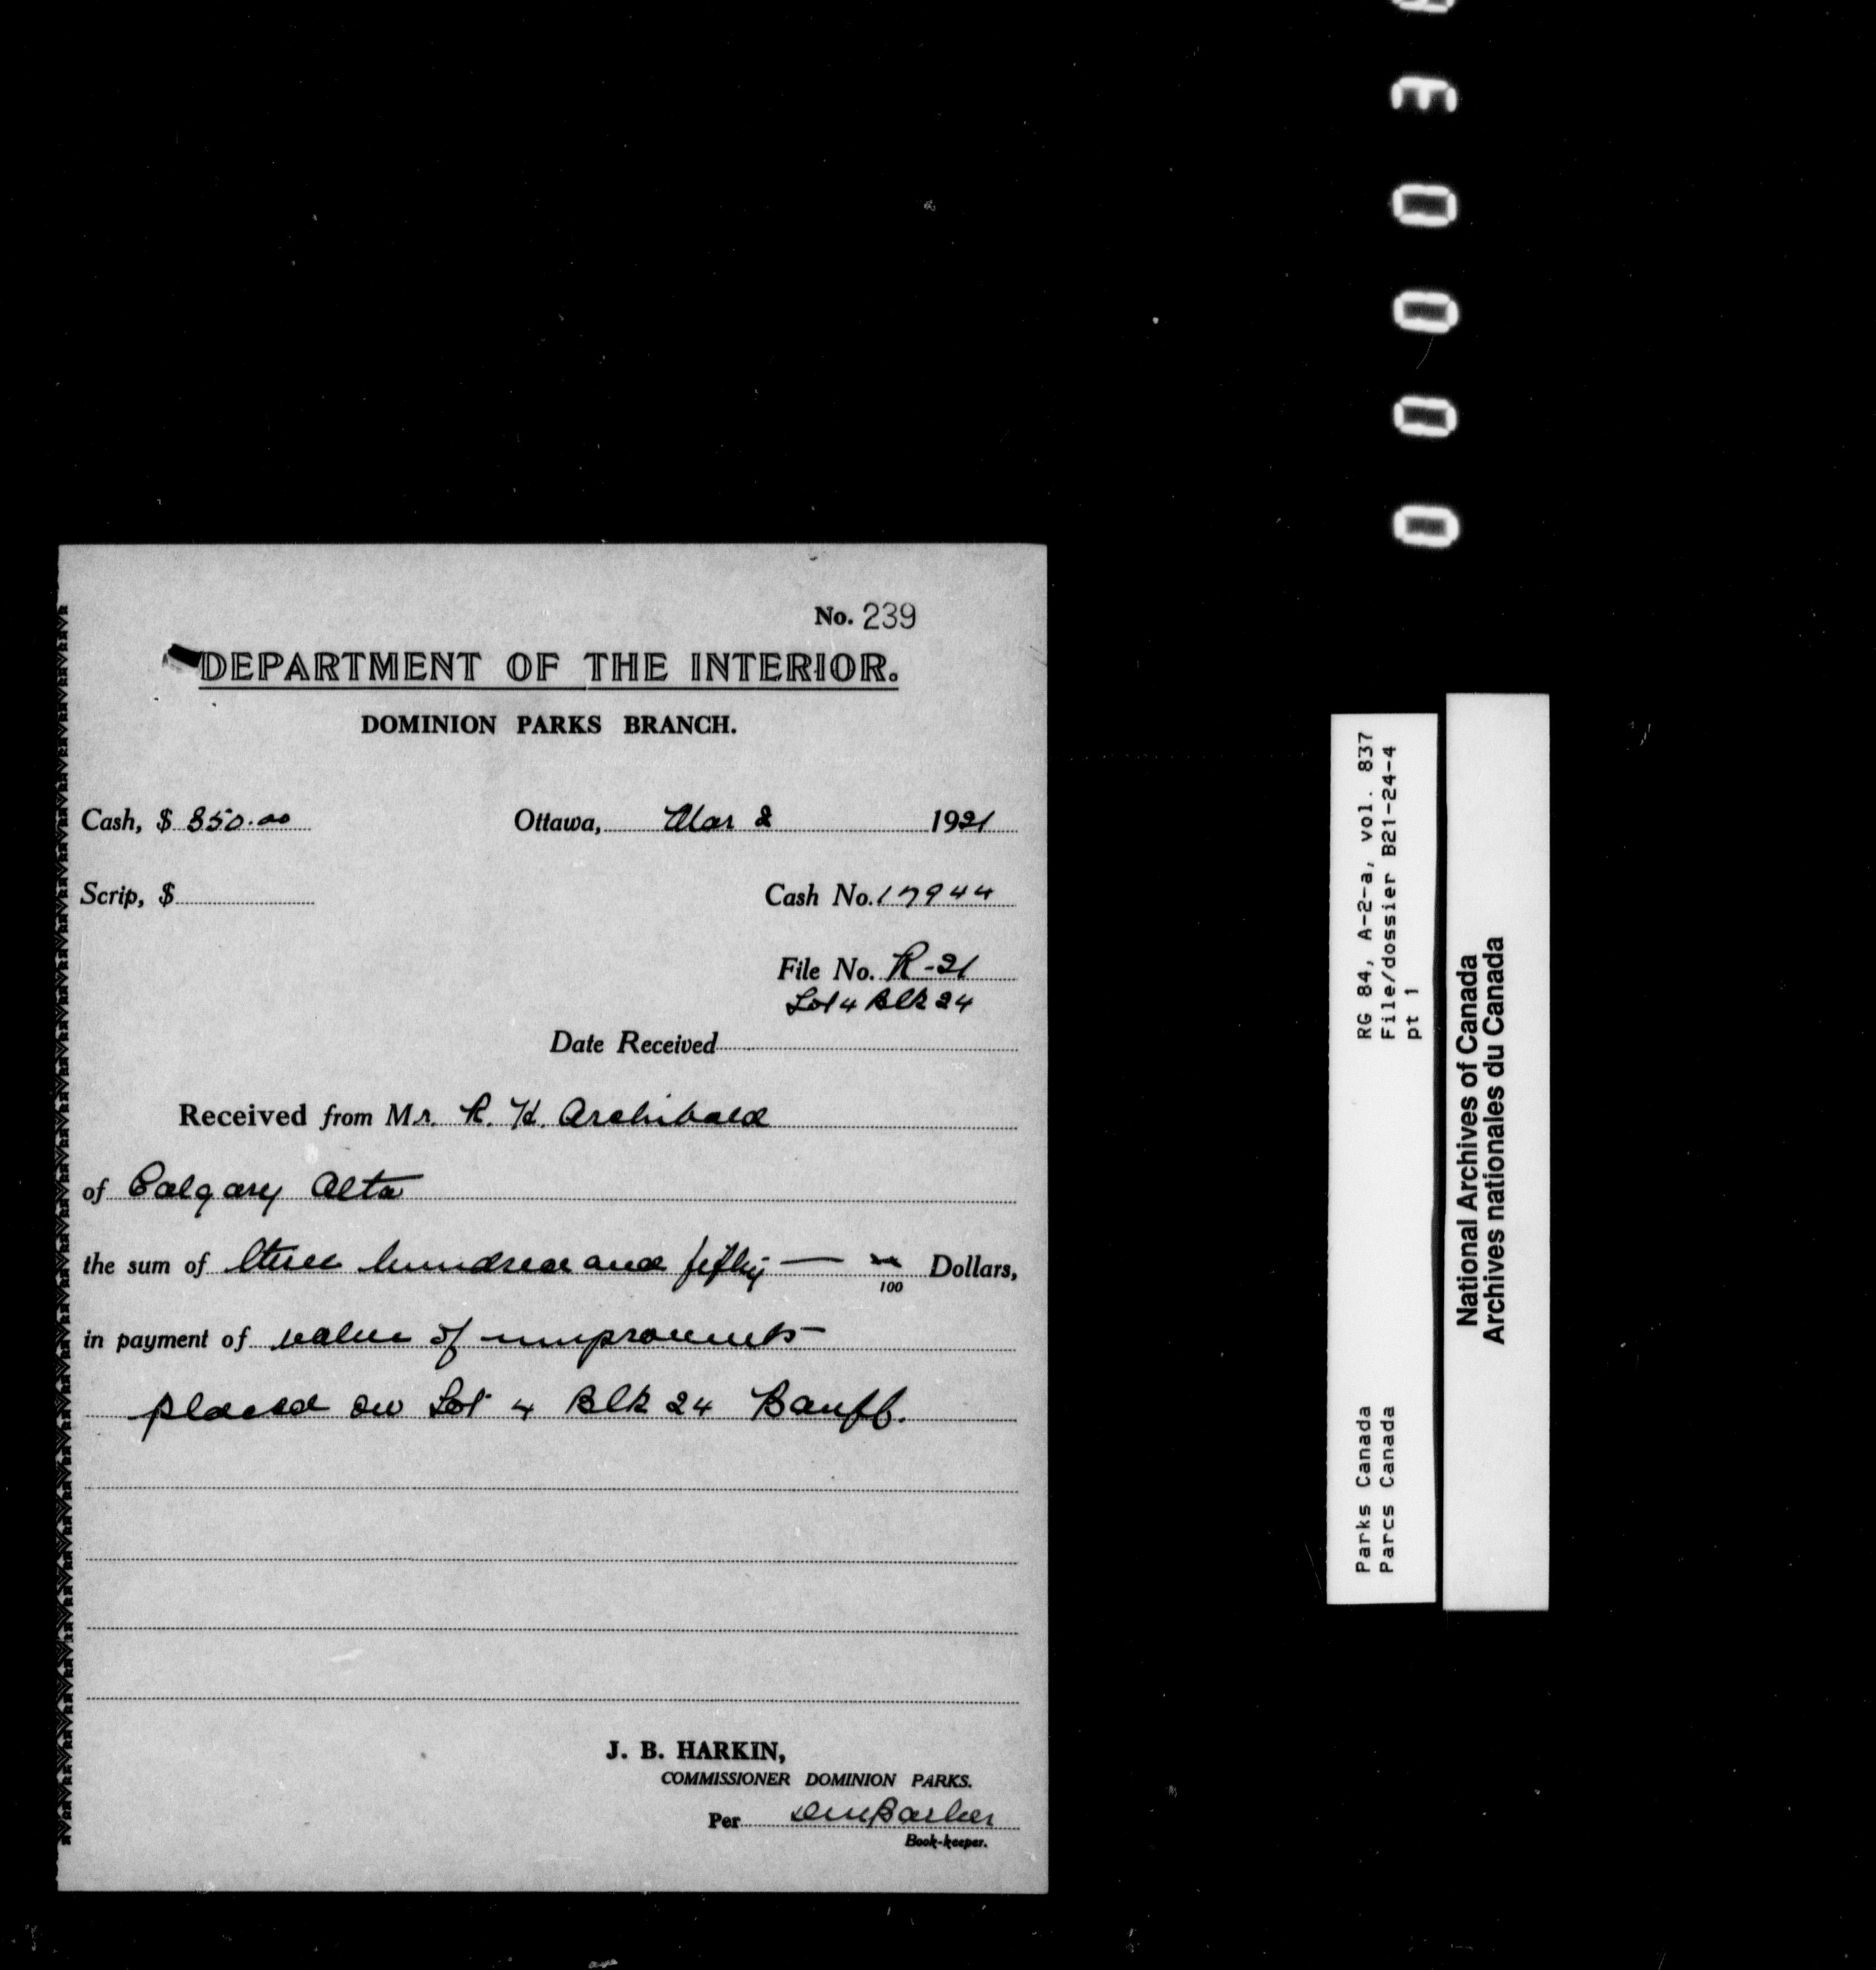 No. 239
DEPARTMENT OF THE INTERIOR.
DOMINION PARKS BRANCH.
Cash, $ 350.00 Ottawa, Mar 2 1921
Scrip, $ Cash No. 17944
File No. R-21
Lot 4 Blk 24
Date Received
Received from Mr. R. H. Archibald
of Calgary Alta
the sum of three hundred and fifty — 100 Dollars,
in payment of value of improvments
placed on Lot 4 Blk 24 Banff.
J. B. HARKIN,
COMMISSIONER DOMINION PARKS.
Per Barber
Book-keeper.
RG 84, A-2-a, vol. 837
File/dossier B21-24-4
pt 1
Parks Canada
Parcs Canada
National Archives of Canada
Archives nationales du Canada